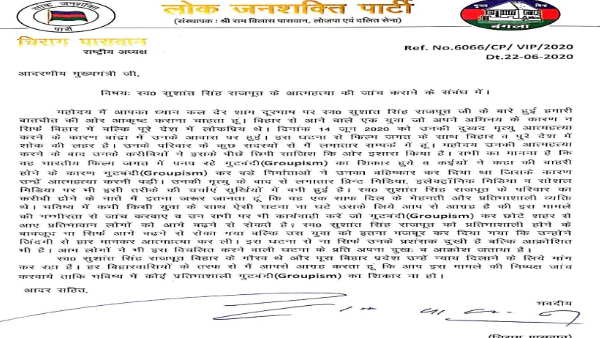 लोक जनशक्ति पार्टी
(संस्थापक : श्री राम विलास पासवान, लोजपा एवं दलित सेना)
बंगला
चिराग पासवान
राष्ट्रीय अध्यक्ष
Ref. No.6066/CP/ VIP/2020
Dt.22-06-2020
आदरणीय मुख्यमंत्री जी,
विषयः स्व० सुशांत सिंह राजपूत के आत्महत्या की जांच कराने के संबंध में।
महोदय मैं आपका ध्यान कल देर शाम दूरभाष पर स्व० सुशांत सिंह राजपूत जी के बारे हुई हमारी
बातचीत की ओर आकृष्ट कराना चाहता हूं, बिहार से आने वाले एक युवा जो अपने अभिनय के कारण न
सिर्फ बिहार में बल्कि पूरे देश में लोकप्रिय थे। दिनांक 14 जून 2020 को उनकी दुखद मृत्यु आत्महत्या
करने के कारण बांद्रा में उनके आवास पर हुई। इस घटना से फिल्म जगत के साथ बिहार व पूरे देश में
शोक की लहर है। उनके परिवार के कुछ सदस्यों से मैं लगातार सम्पर्क में हूं। महोदय उनकी आत्महत्या
करने के बाद उनके करीबियों ने इसके पीछे छिपी साजिश की ओर इशारा किया है। सभी का मानना है कि
वह भारतीय फिल्म जगत में पनप रहे गुटबंदी(Groupism) का शिकार हुये व कईयों ने कहा की बाहरी
होने के कारण गुटबंदी(Groupism) कर बड़े निर्माताओं ने उनका बहिष्कार कर दिया था जिसके कारण
उन्हें आत्महत्या करनी पड़ी। उनकी मृत्यु के बाद से लगातार प्रिन्ट मिडिया, इलेक्ट्रॉनिक मिडिया व सोशल
मिडिया पर भी इसी तरीके की चर्चाएं सुर्खियों में बनी हुई है। स्व० सुशांत सिंह राजपूत के परिवार का
करीबी होने के नाते मैं इतना जरूर जानता हूं कि वह एक साफ दिल के मेहनती और प्रतिभाशाली व्यक्ति
थे। भविष्य में कभी किसी युवा के साथ ऐसी घटना ना घटे उसके लिये आप से आग्रह है की इस मामले
की गम्भीरता से जांच करवाए व उन सभी पर भी कार्यवाही करें जो गुटबंदी(Groupism) कर छोटे शहर से
आए प्रतिभावान लोगों को आगे बढ़ने से रोकते है। स्व० सुशांत सिंह राजपूत को प्रतिभाशाली होने के
बावजूद ना सिर्फ आगे बढ़ने से रोका गया बल्कि उस युवा को इतना मजबूर कर दिया गया कि उन्होंने
जिंदगी से हार मानकर आत्महत्या कर ली। इस घटना से ना सिर्फ उनके प्रशंसक दुखी है बल्कि आक्रोशित
भी है। आम लोगों ने भी इस विचलित करने वाली घटना के प्रति अपना दुख व आक्रोश जताया है।
स्व० सुशांत सिंह राजपूत बिहार के गौरव थे और पूरा बिहार प्रदेश उन्हें न्याय दिलाने के लिये मांग
कर रहा है। हर बिहारवासियों के तरफ से मैं आपसे आग्रह करता हूं कि आप इस मामले की निष्पक्ष जांच
करवाये ताकि भविष्य में कोई प्रतिभाशाली गुटबंदी(Groupism) का शिकार ना हो।
आदर सहित,
भवदीय
(चिराग पासवान)